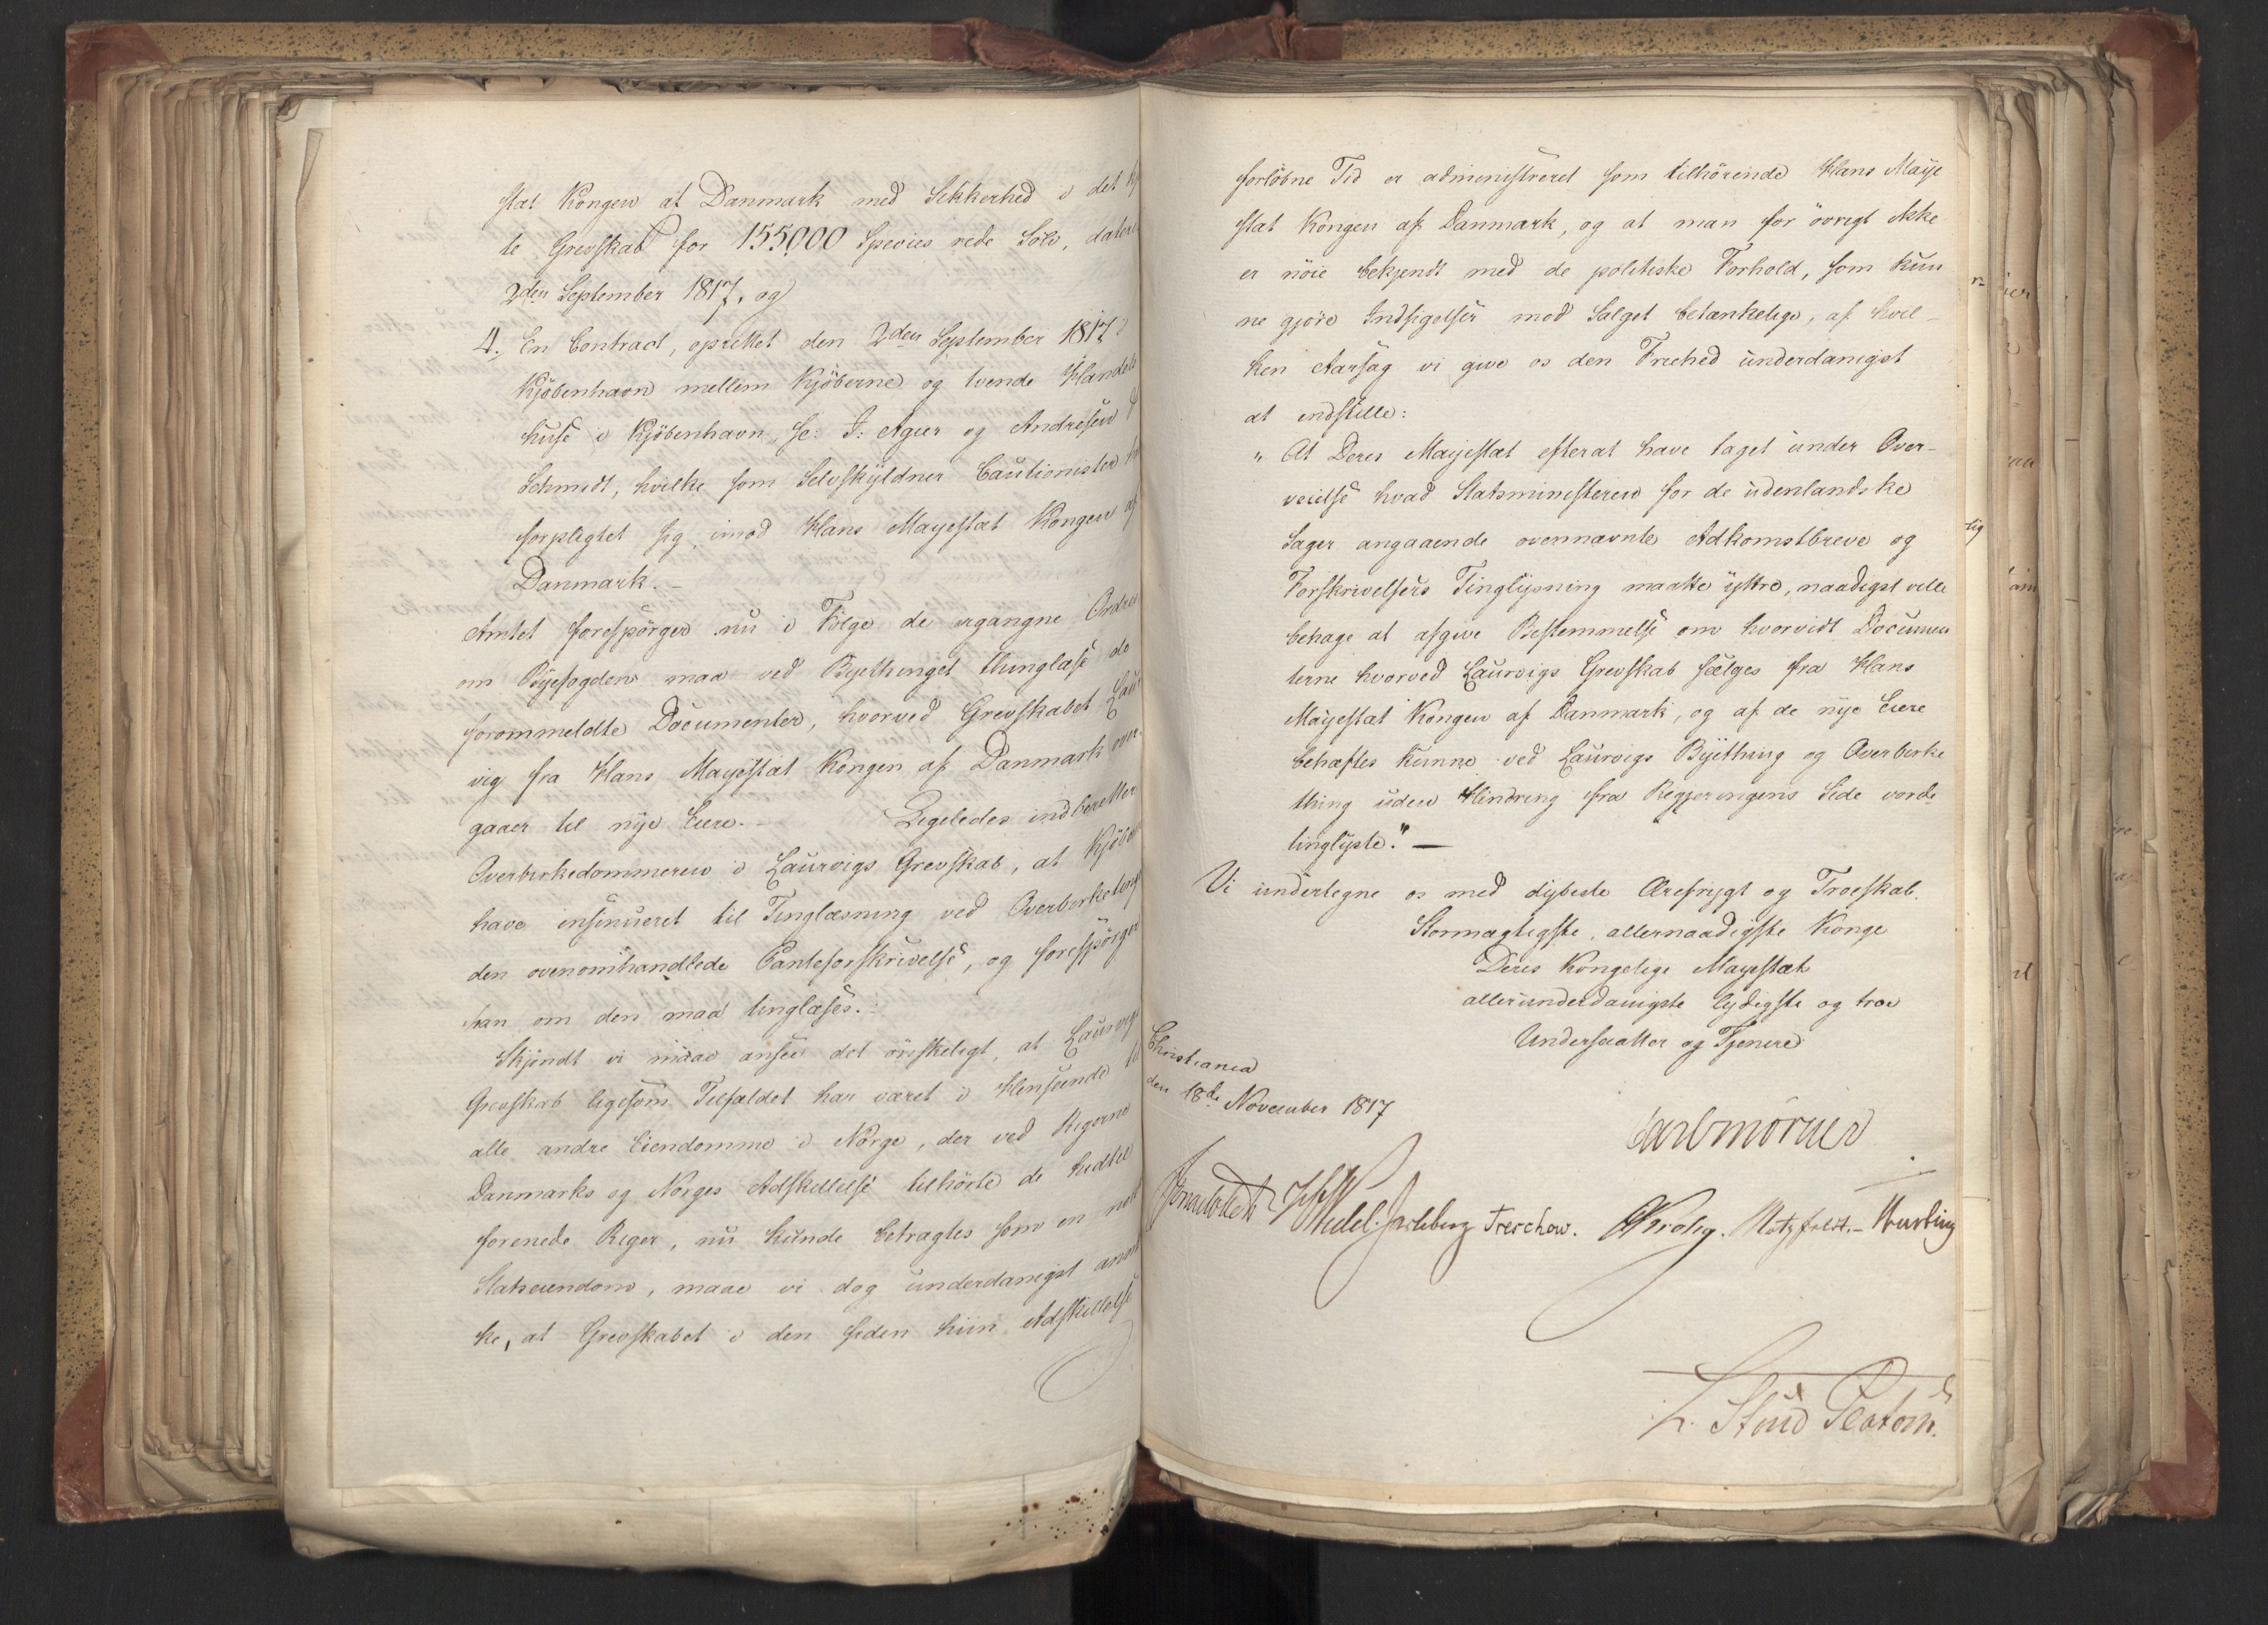 stæt Kongen af Danmark med Sikkerhed i det
te Grevskab for 155000 Species rede Sölv, datere
2den September 1817, og
4. En Contract, oprettet den 2den September 1817 i
Kjöbenhavn mellem Kjöberne og tvende Handels
huse i Kjöbenhavn, sc: J: Agier og Andresen &
Schmidt, hvilke som Selvskyldner Cautionister
forpligtet sig imod Hans Mayestæt Kongen af
Danmark. –
Amtet forespörger nu i Fölge de ergangne Ordre
om Byefogden maa ved Byethinget thinglæse de
forommeldte Documenter, hvorved Grevskabet Laur
vig fra Hans Mayestæt Kongen af Danmark over-
gaaer til nye Eiere. – Ligeledes indberetter
Overbirkedommeren i Laurvigs Grevskab, at Kjöberne
have insinueret til Tinglæsning ved Overbirketinget
den ovenomhandlede Panteforskrivelse, og forespörger
han om den maa tinglæses. –
Skjöndt vi maae ansee det önskeligt, at Laurvigs
Grevskab ligesom Tilfældet har været i Henseende til
alle andre Eiendomme i Norge, der ved Rigerne
Danmarks og Norges Adskillelse tilhörte de hidtil
forenede Riger, nu kunde betragtes som en norsk
Statseiendom, maae vi dog underdanigst anmær
ke, at Grevskabet i den siden hiin Adskillelse
forlöbne Tid er administreret som tilhörende Hans Maye
stæt Kongen af Danmark, og at man for övrigt ikke
er nöie bekjendt med de politiske Forhold, som kun
ne gjöre Indsigelser mod Salget betænkelige, af hvil-
ken Aarsag vi give os den Friehed underdanigst
at indstille:
" At Deres Mayestæt efterat have taget under Over-
veielse hvad Statsministeren for de udenlandske
Sager angaaende ovennævnte Adkomstbreve og
Forskrivelsers Tinglysning maatte yttre, naadigst ville
behage at afgive Bestemmelse om hvorvidt Documen
terne hvorved Laurvigs Grevskab sælges fra Hans
Mayestæt Kongen af Danmark, og af de nye Eiere
behæftes kunne ved Laurvigs Byething og Overbirke
thing uden Hindring fra Regjeringens Side vorde
tinglyste." —
Vi undertegne os med dybeste Ærefrygt og Troeskab.
Stormægtigste, allernaadigste Konge
Deres Kongelige Mayestæts
allerunderdanigste lydigste og troe
Undersaatter og Tjenere
Christiania
den 18de November 1817
Carl Mörner
Sommerfeldt HWedel-Jarlsberg Treschow. CKrohg. Motzfeldt. – Hersleb
L. Stoud Platou.